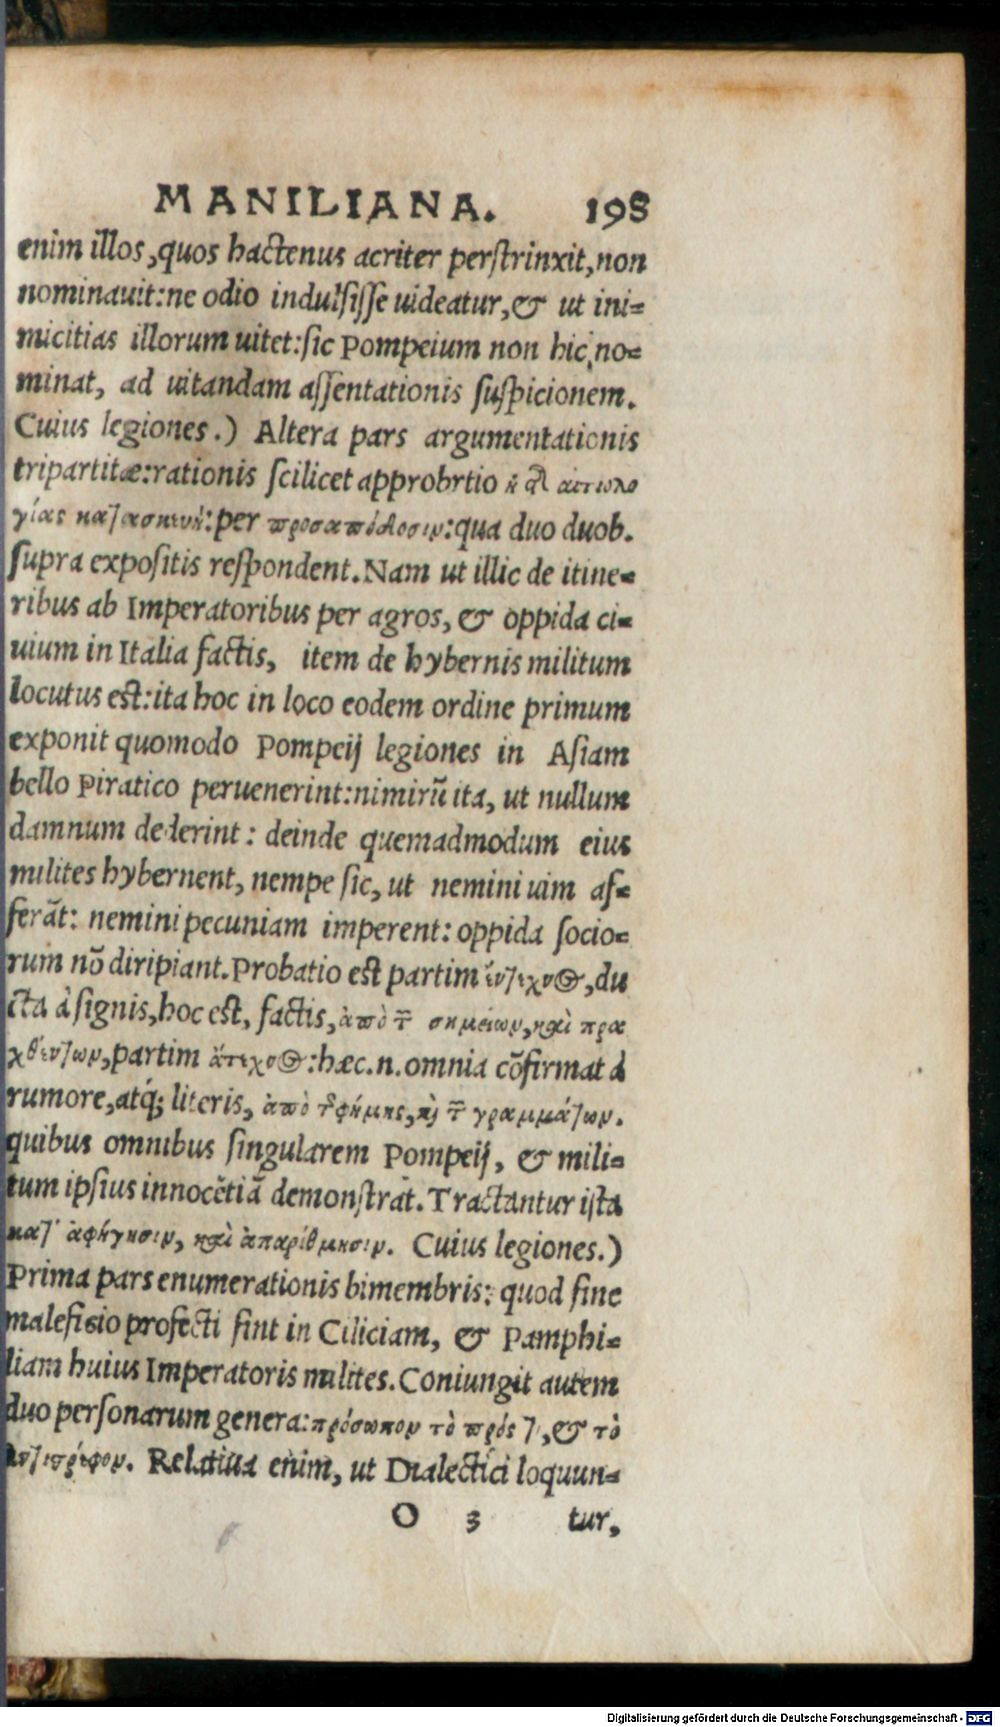 MANILIANA. 198
enim illos, quos hactenus acriter perstrinxit, non
nominauit: ne odio indulsisse uideatur, & ut ini=
micitias illorum uitet: sic Pompeium non hic no=
minat, ad uitandam assentationis suspicionem.
Cuius legiones.) Altera pars argumentationis
tripartitæ: rationis scilicet approbrtio αἰτιολο
γίας καὶ ασκευὴ: per προσαπόδοσιν: qua duo duob.
supra expositis respondent. Nam ut illic de itine=
ribus ab Imperatoribus per agros, & oppida ci=
uium in Italia factis, item de hybernis militum
locutus est: ita hoc in loco eodem ordine primum
exponit quomodo Pompeij legiones in Asiam
bello Piratico peruenerint: nimirũ ita, ut nullum
damnum dederint: deinde quemadmodum eius
milites hybernent, nempe sic, ut nemini uim af=
ferãt: nemini pecuniam imperent: oppida socio=
rum nõ diripiant. Probatio est partim ἔντεχνος, du
cta à signis, hoc est, factis, ἀπὸ τ̃ σημείων, καὶ πρα
χθέντων, partim ἄτεχνος: hæc.n. omnia cõfirmat à
rumore, atq́; literis, ἀπὸ τ̃ φήμης, κὶ τ̃ γραμμάτων.
quibus omnibus singularem Pompeij, & mili=
tum ipsius innocẽtiã demonstrat. Tractantur ista
κατ' ἀφήγησιν, καὶ ἀπαρίθμησιν. Cuius legiones.)
Prima pars enumerationis bimembris: quod sine
maleficio profecti sint in Ciliciam, & Pamphi=
liam huius Imperatoris milites. Coniungit autem
duo personarum genera: πρόσωπον τὸ πρός τι, & τὸ
ἀντιστρέφον. Relatiua enim, ut Dialectici loquun=
O 3 tur,
Digitalisierung gefördert durch die Deutsche Forschungsgemeinschaft - DFG